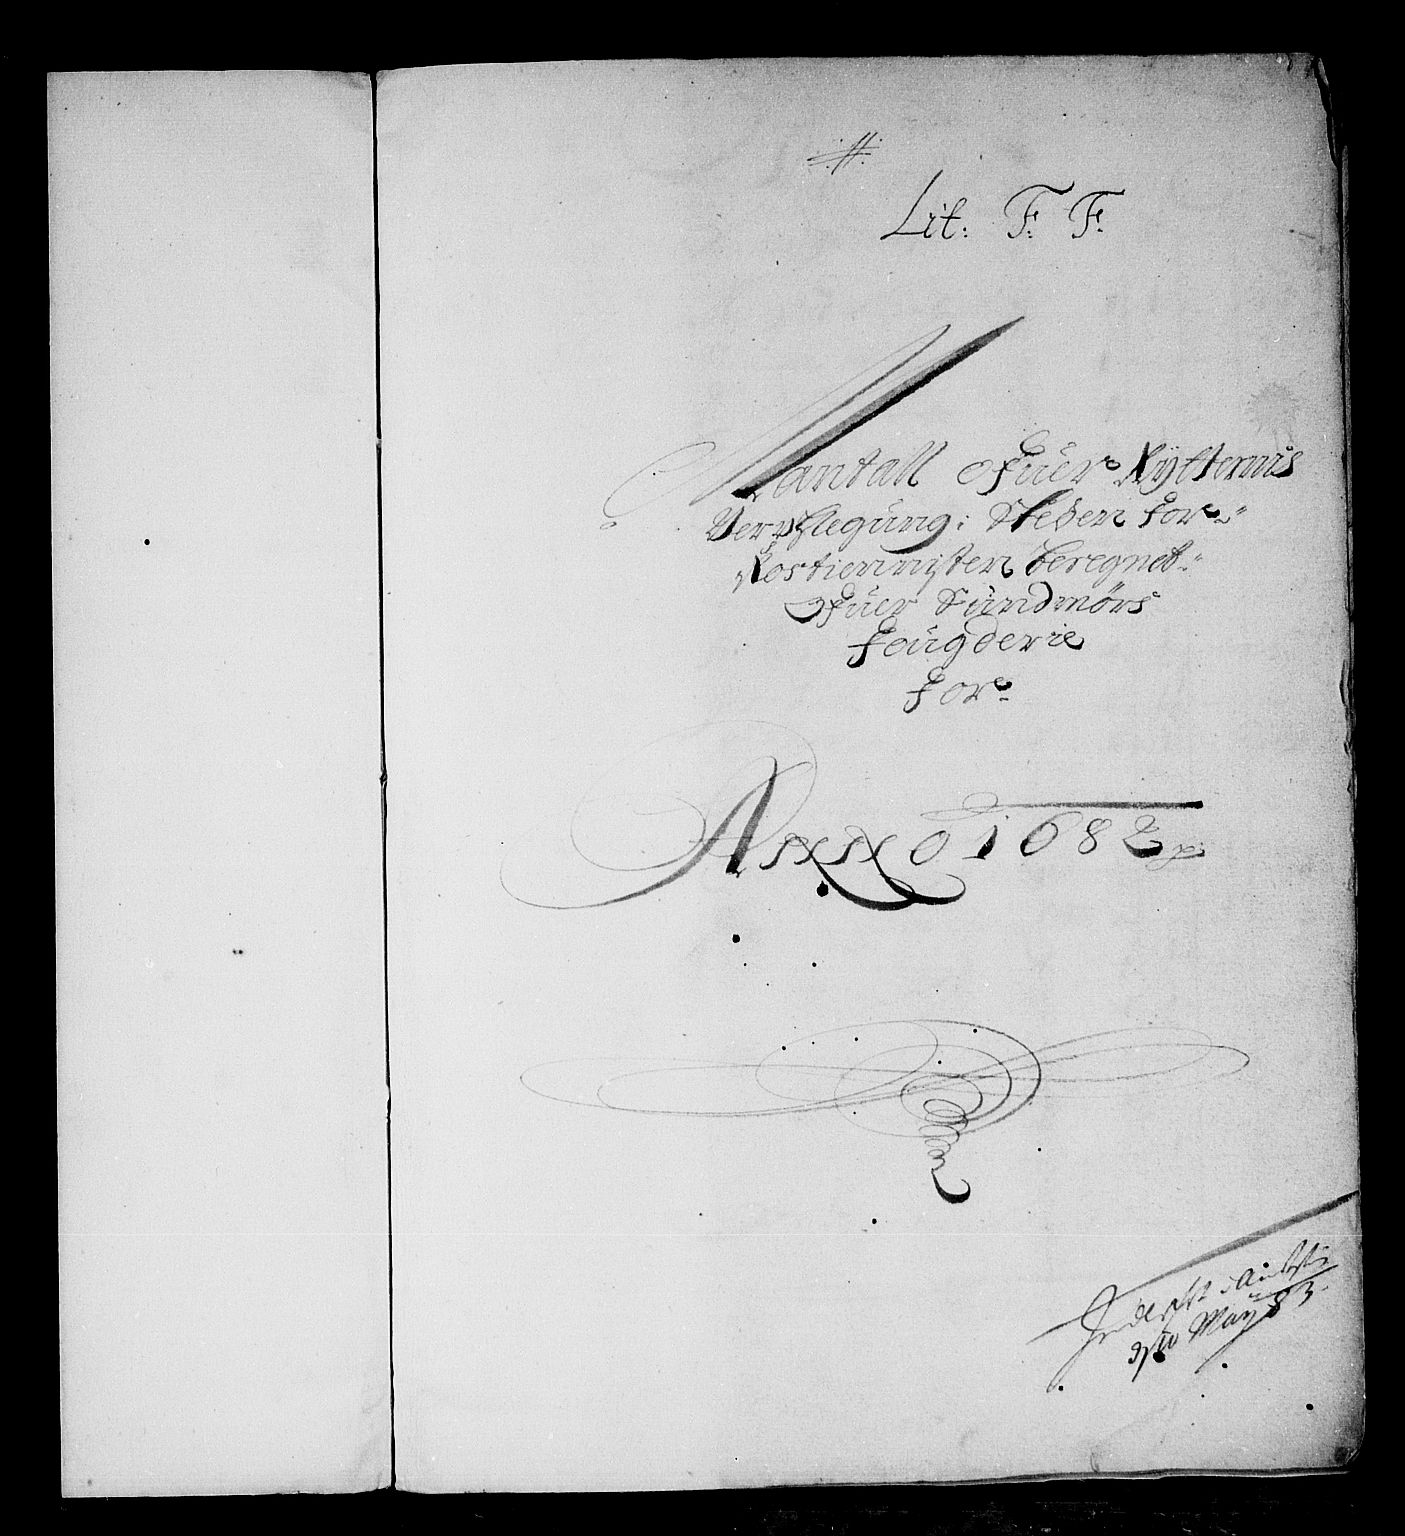 Lit: F: F:
Mantall Ofuer Rytternis
Verpflegung; Steden for
Rostiennisten beregnet
Ofuer Sundmørs
fougderie
for
Anno 1682
May 83